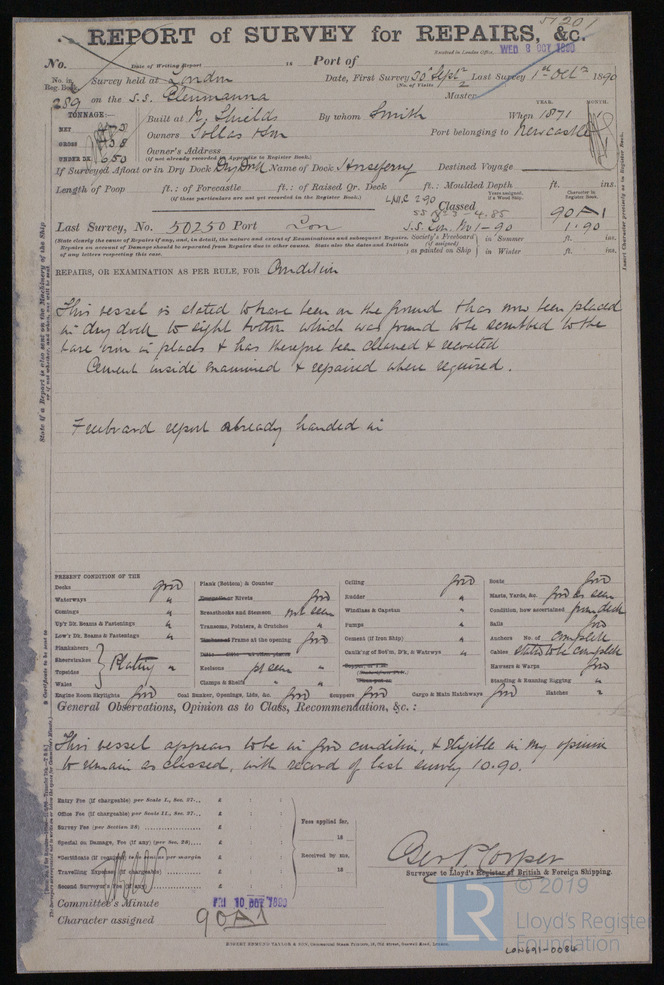 201
REPORT of SURVEY for REPAIRS, &c.
Received in London Office, WED 8 OCT 1890
No. Date of Writing Report 18 Port of
No. in Reg. Book Survey held at London Date, First Survey 30th Sept Last Survey 1st Oct 1890
(No. of Visits 2
289 on the S.S. Master
TONNAGE:— YEAR. MONTH.
NET Built at N. Shields By whom Smith When 1871
GROSS Owners Port belonging to Newcastle
UNDER DK. 650 Owner's Address
(If not already recorded in Appendix to Register Book.)
If Surveyed Afloat or in Dry Dock Dry Dock Name of Dock Horseferry Destined Voyage
Length of Poop ft.: of Forecastle ft.: of Raised Qr. Deck ft.: Moulded Depth ft. ins.
(If these particulars are not yet recorded in the Register Book.)
Classed 90A1
Last Survey, No. 50250 Port Lon S.S. Lon. No 1-90 1.90
(State clearly the cause of Repairs, if any, and, in detail, the nature and extent of Examinations and subsequent Repairs. Society's Freeboard in Summer ft. ins.
Repairs on account of Damage should be separated from Repairs due to other causes. State also the dates and initials of any letters respecting this case. as painted on Ship in Winter ft. ins.
REPAIRS, OR EXAMINATION AS PER RULE, FOR Condition
This vessel is stated to have been on the ground & has now been placed
in dry dock to sight bottom which was found to be scrubbed to the
bare iron in places & has therefore been cleaned & recoated
Cement inside examined & repaired where required.
Freeboard report already handed in
PRESENT CONDITION OF THE
Decks good
Waterways "
Comings "
Up'r Dk. Beams & Fastenings "
Low'r Dk. Beams & Fastenings "
Plankshears
Sheerstrakes
Topsides
Wales
Plating "
Plank (Bottom) & Counter
Rivets good
Breasthooks and Stemson not seen
Transoms, Pointers, & Crutches "
Frame at the opening good
Keelsons pt seen
Clamps & Shelfs "
Ceiling good
Rudder "
Windlass & Capstan "
Pumps "
Cement (if Iron Ship) "
Caulk'g of Bot'm, D'k, & Watrwys "
Boats good
Masts, Yards, &c. good as seen
Condition, how ascertained from deck
Sails good
Anchors No. of complete
Cables stated to be complete
Hawsers & Warps good
Standing & Running Rigging "
Engine Room Skylights good Coal Bunker, Openings, Lids, &c. good Scuppers good Cargo & Main Hatchways good Hatches "
General Observations, Opinion as to Class, Recommendation, &c. :
This vessel appears to be in good condition, & eligible in my opinion
to remain as classed, with record of last survey 10.90.
Entry Fee (if chargeable) per Scale I., Sec. 27... £
Office Fee (if chargeable) per Scale II., Sec. 27... £
Survey Fee (per Section 28) £
Special on Damage, Fee (if any) (per Sec. 28) £
*Certificate (if required) to be sent as per margin
Travelling Expenses (if chargeable) £
Second Surveyor's Fee (if any) £
Fees applied for, 18
Received by me, 18
Surveyor to Lloyd's Register of British & Foreign Shipping.
Committee's Minute FRI 10 OCT 1890
Character assigned 90A1
© 2019
LR
Lloyd's Register
Foundation
LON691-0084